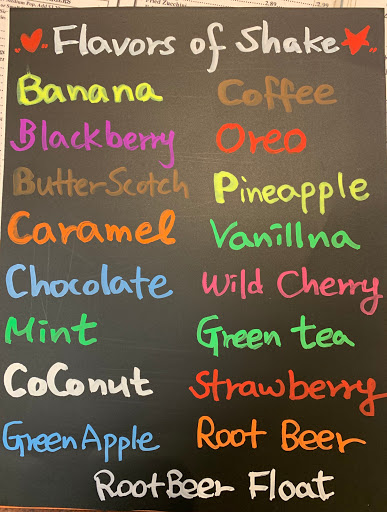 Flavors of Shake
Banana
Coffee
Blackberry
Oreo
ButterScotch
Pineapple
Caramel
Vanillna
Chocolate
Wild Cherry
Mint
Green tea
CoConut
Strawberry
Green Apple
Root Beer
Root Beer Float